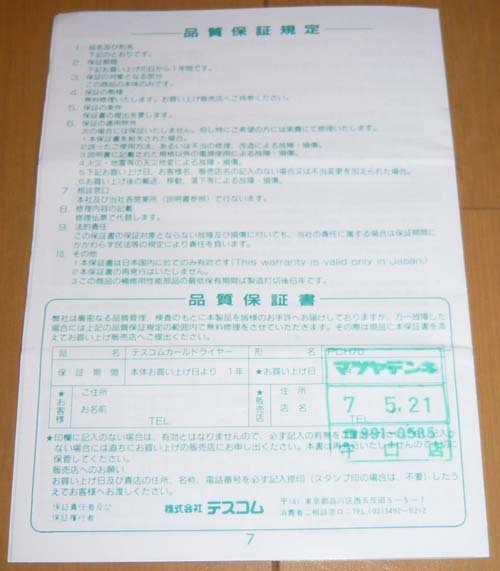 品質保証規定
1. 品名及び形名
下記のとおりです。
2. 保証期間
下記お買い上げの日から1年間です。
3. 保証の対象となる部分
この商品の本体のみです。
4. 保証の態様
無料修理いたします。お買い上げ販売店へご持参ください。
5. 保証の条件
保証書の提出を要します。
6. 保証の適用除外
次の場合には保証いたしません。但し特にご希望の方には実費にて修理いたします。
1本保証書を紛失された場合。
2誤ったご使用方法、あるいは不当の修理、改造による故障・損傷。
3説明書に記載された規格以外の電源使用による故障・損傷。
4火災・地震等の天災地変による故障・損傷。
5下記お買い上げ日、お客様名、販売店名の記入のない場合又は不当変更を加えられた場合。
6お買い上げ後の輸送、移動、落下等による故障・損傷。
7. 相談窓口
本社及び当社各営業所(説明書参照)で行ないます。
8. 修理内容の記載
修理伝票で代替します。
9. 法的責任
この保証書の保証対象とならない故障及び損傷に付いても、当社の責任に属する場合は保証期間に
かかわらず民法等の規定により責任を負います。
10. その他
1本保証書は日本国内に於てのみ有効です(This warranty is valid only in Japan.)
2本保証書の再発行はいたしません。
3この商品の補修用性能部品の最低保有期間は製造打切後6年です。
品質保証書
弊社は厳密なる品質管理、検査のもとに本製品を皆様のお手許へお届けしておりますが、万一故障した
場合には上記の品質保証規定の範囲内で無料修理をさせていただきます。その際は現品に本保証書を添
えてお買い上げ販売店へご提出ください。
品名 テスコムカールドライヤー 形名 PCH70
保証期間 本体お買い上げ日より 1年 ★お買い上げ日
マツヤデンキ
★お客様 ご住所 ★販売店 住所
お名前 店名
7 5.21
TEL. TEL.
☎991-0585
★印欄に記入のない場合は、有効とはなりませんので、必ず記入の有無を
場合には直ちにお買い上げの販売店にお申し出ください。本書は再
保管してください。
販売店へのお願い
お買い上げ日及び貴店の住所、名称、電話番号を必ず記入捺印(スタンプ印の場合は、不要)したう
えでお客様へお渡しください。
保証責任者及び
保証履行者
株式会社 テスコム
〒141 東京都品川区西五反田5-5-7
消費者ご相談窓口:TEL(03)3492-0212
7